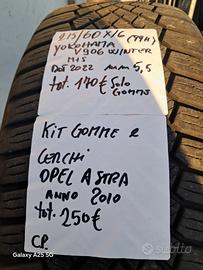 215/60 R16 (99H)
YOKOHAMA
V906 WINTER
M+S
DOT 2022 mm 5,5
tot. 170€ Solo
Gomme
KIT GOMME e
CERCHI
OPEL ASTRA
ANNO 2010
tot. 250€
CP
Galaxy A25 5G
subito